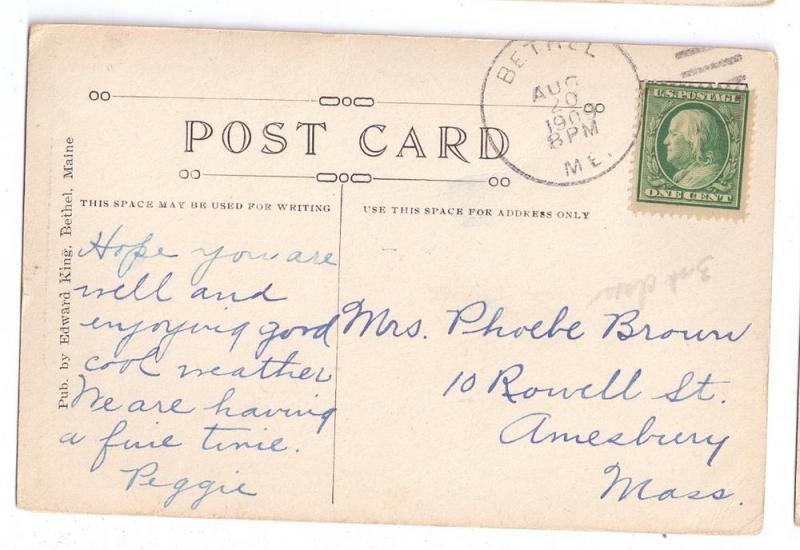 BETHEL
AUG
20
1909
8 PM
ME.
U.S. POSTAGE
ONE CENT
POST CARD
THIS SPACE MAY BE USED FOR WRITING
USE THIS SPACE FOR ADDRESS ONLY
Pub. by Edward King, Bethel, Maine
Hope you are
well and
enjoying good
cool weather
We are having
a fine time.
Peggie
Mrs. Phoebe Brown
10 Rowell St.
Amesbury
Mass.